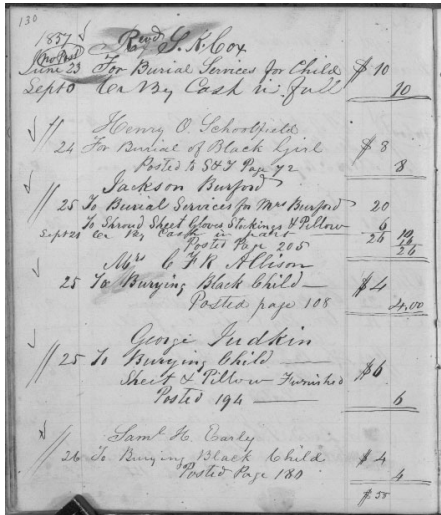 130
1857 Revd S. K. Cox
No Post
June 23 For Burial Services for Child $10
Sept 5 Cr By Cash in full 10
Henry O. Schoolfield
// 24 For Burial of Black Girl $8
Posted to S&T Page 72 8
Jackson Burford
// 25 To Burial Services for Mrs Burford 20
To Shroud Sheet Gloves Stockings & Pillow 6
Sept 21 Cr By Cash in 26 10
Posted Page 205 16
26
Mrs C F R Allison
// 25 To Burying Black Child — $4
Posted page 108 4.00
George Judkin
// 25 To Burying Child —
Sheet & Pillow Furnished $6
Posted 194 — 6
Saml H. Early
// 26 To Burying Black Child $4
Posted Page 180 4
$58